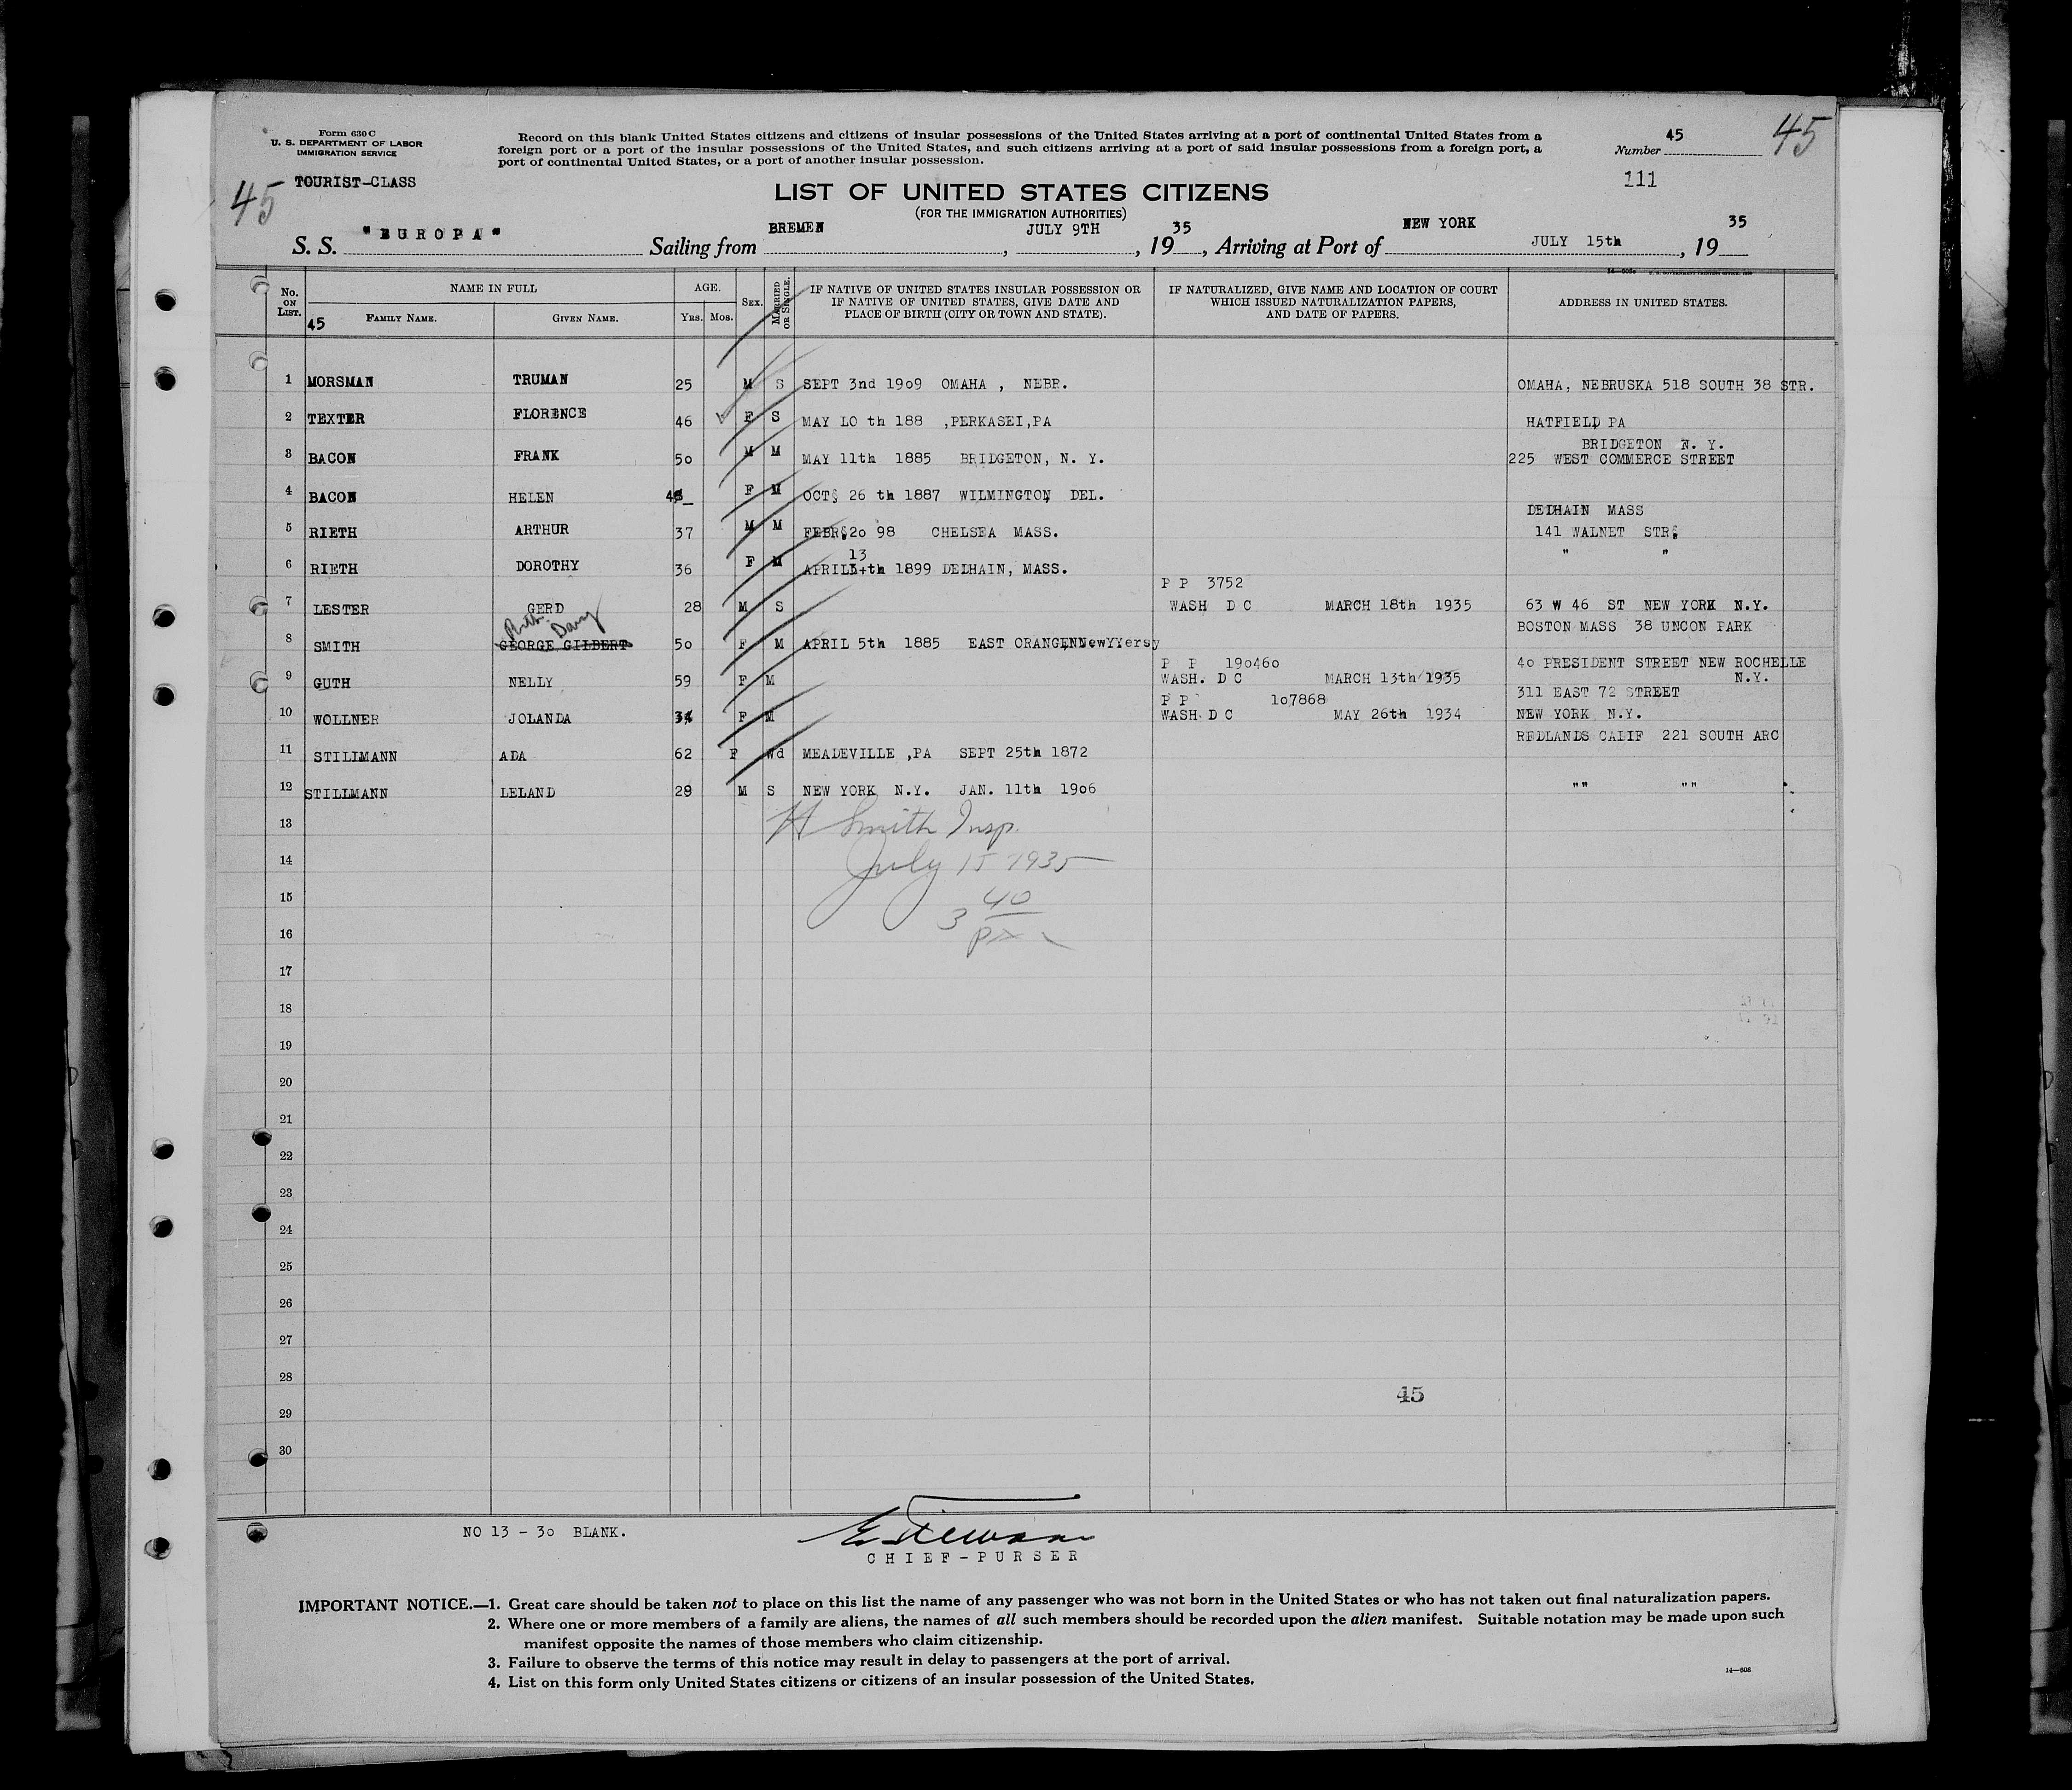 Form 630 C
U. S. DEPARTMENT OF LABOR
IMMIGRATION SERVICE
Record on this blank United States citizens and citizens of insular possessions of the United States arriving at a port of continental United States from a
foreign port or a port of the insular possessions of the United States, and such citizens arriving at a port of said insular possessions from a foreign port, a
port of continental United States, or a port of another insular possession.
Number 45
45
111
45
TOURIST-CLASS
LIST OF UNITED STATES CITIZENS
(FOR THE IMMIGRATION AUTHORITIES)
S. S. "EUROPA" Sailing from BREMEN, JULY 9TH, 19 35, Arriving at Port of NEW YORK JULY 15th, 19 35
No. ON LIST. NAME IN FULL AGE. SEX. MARRIED OR SINGLE. IF NATIVE OF UNITED STATES INSULAR POSSESSION OR IF NATIVE OF UNITED STATES, GIVE DATE AND PLACE OF BIRTH (CITY OR TOWN AND STATE). IF NATURALIZED, GIVE NAME AND LOCATION OF COURT WHICH ISSUED NATURALIZATION PAPERS, AND DATE OF PAPERS. ADDRESS IN UNITED STATES.
45 FAMILY NAME. GIVEN NAME. YRS. MOS.
1 MORSMAN TRUMAN 25 M S SEPT 3nd 19o9 OMAHA , NEBR. OMAHA, NEBRUSKA 518 SOUTH 38 STR.
2 TEXTER FLORENCE 46 F S MAY LO th 188 ,PERKASEI,PA HATFIELD PA
BRIDGETON N. Y.
3 BACON FRANK 5o M M MAY 11th 1885 BRIDGETON, N. Y. 225 WEST COMMERCE STREET
4 BACON HELEN F M OCT§ 26 th 1887 WILMINGTON, DEL.
DEDHAIN MASS
5 RIETH ARTHUR 37 M M FEBR§2o 98 CHELSEA MASS. 141 WALNET STR§
13
6 RIETH DOROTHY 36 F M APRIL th 1899 DEDHAIN, MASS. " "
P P 3752
7 LESTER GERD 28 M S WASH D C MARCH 18th 1935 63 W 46 ST NEW YORK N.Y.
Ruth Davy
BOSTON MASS 38 UNCON PARK
8 SMITH GEORGE GILBERT 5o F M APRIL 5th 1885 EAST ORANGE,NNewYYersy
P P 19o46o 4o PRESIDENT STREET NEW ROCHELLE
9 GUTH NELLY 59 F M WASH. D C MARCH 13th 1935 N.Y.
P P 1o7868 311 EAST 72 STREET
10 WOLLNER JOLANDA 34 F M WASH D C MAY 26th 1934 NEW YORK N.Y.
REDLANDS CALIF 221 SOUTH ARC
11 STILLMANN ADA 62 F Wd MEADEVILLE ,PA SEPT 25th 1872
12 STILLMANN LELAND 29 M S NEW YORK N.Y. JAN. 11th 19o6 "" ""
13
H Smith Insp.
14
July 15 1935
15
40
16
3
17
18
19
20
21
22
23
24
25
26
27
28
45
29
30
NO 13 - 3o BLANK.
CHIEF-PURSER
IMPORTANT NOTICE.—1. Great care should be taken not to place on this list the name of any passenger who was not born in the United States or who has not taken out final naturalization papers.
2. Where one or more members of a family are aliens, the names of all such members should be recorded upon the alien manifest. Suitable notation may be made upon such
manifest opposite the names of those members who claim citizenship.
3. Failure to observe the terms of this notice may result in delay to passengers at the port of arrival.
4. List on this form only United States citizens or citizens of an insular possession of the United States.
14—608